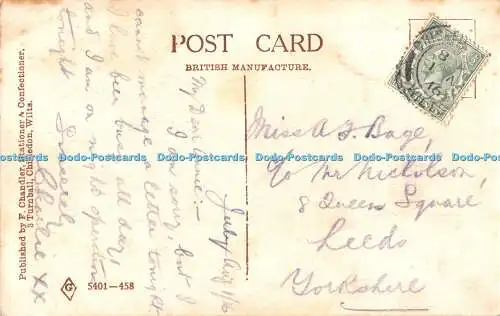 POST CARD
BRITISH MANUFACTURE.
Published by F. Chandler, Stationer & Confectioner,
3 Turnball, Chiseledon, Wilts.
5401—458
July Aug 1/16
My Dear Annie:-
I am sorry but I
cannot manage a letter tonight.
I have been busy all day
and I am on night operations
tonight
Sincerely
Charlie xx
Miss A J Bage,
c/o Mr Nicholson,
8 Queens Square,
Leeds
Yorkshire
Dodo-Postcards Dodo-Postcards Dodo-Postcards Dodo-Postcards Dodo-Postcards